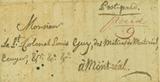 Postpaid
Monsieur
Le Lt. Colonel Louis Guy, des Milices de Montréal,
&c. &c. &c.
à Montréal